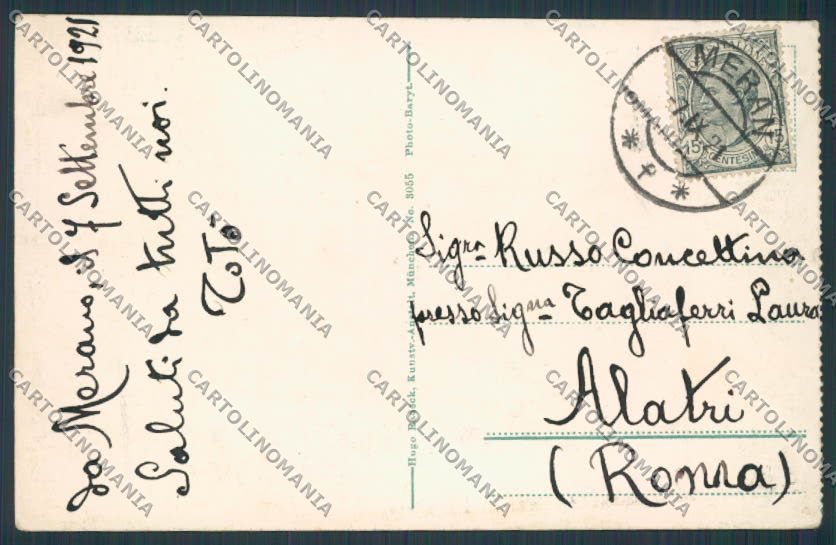 da Merano, il 7 Settembre 1921
Saluti da tutti noi.
Totò
Kunstv.-Anstalt, München. No. 3055 Photo-Baryt.
MERAN
7.IX.21
* f *
15 15
CENTESIMI
Sigra Russo Concettina
presso Signa Tagliaferri Laura
Alatri
(Roma)
CARTOLINOMANIA